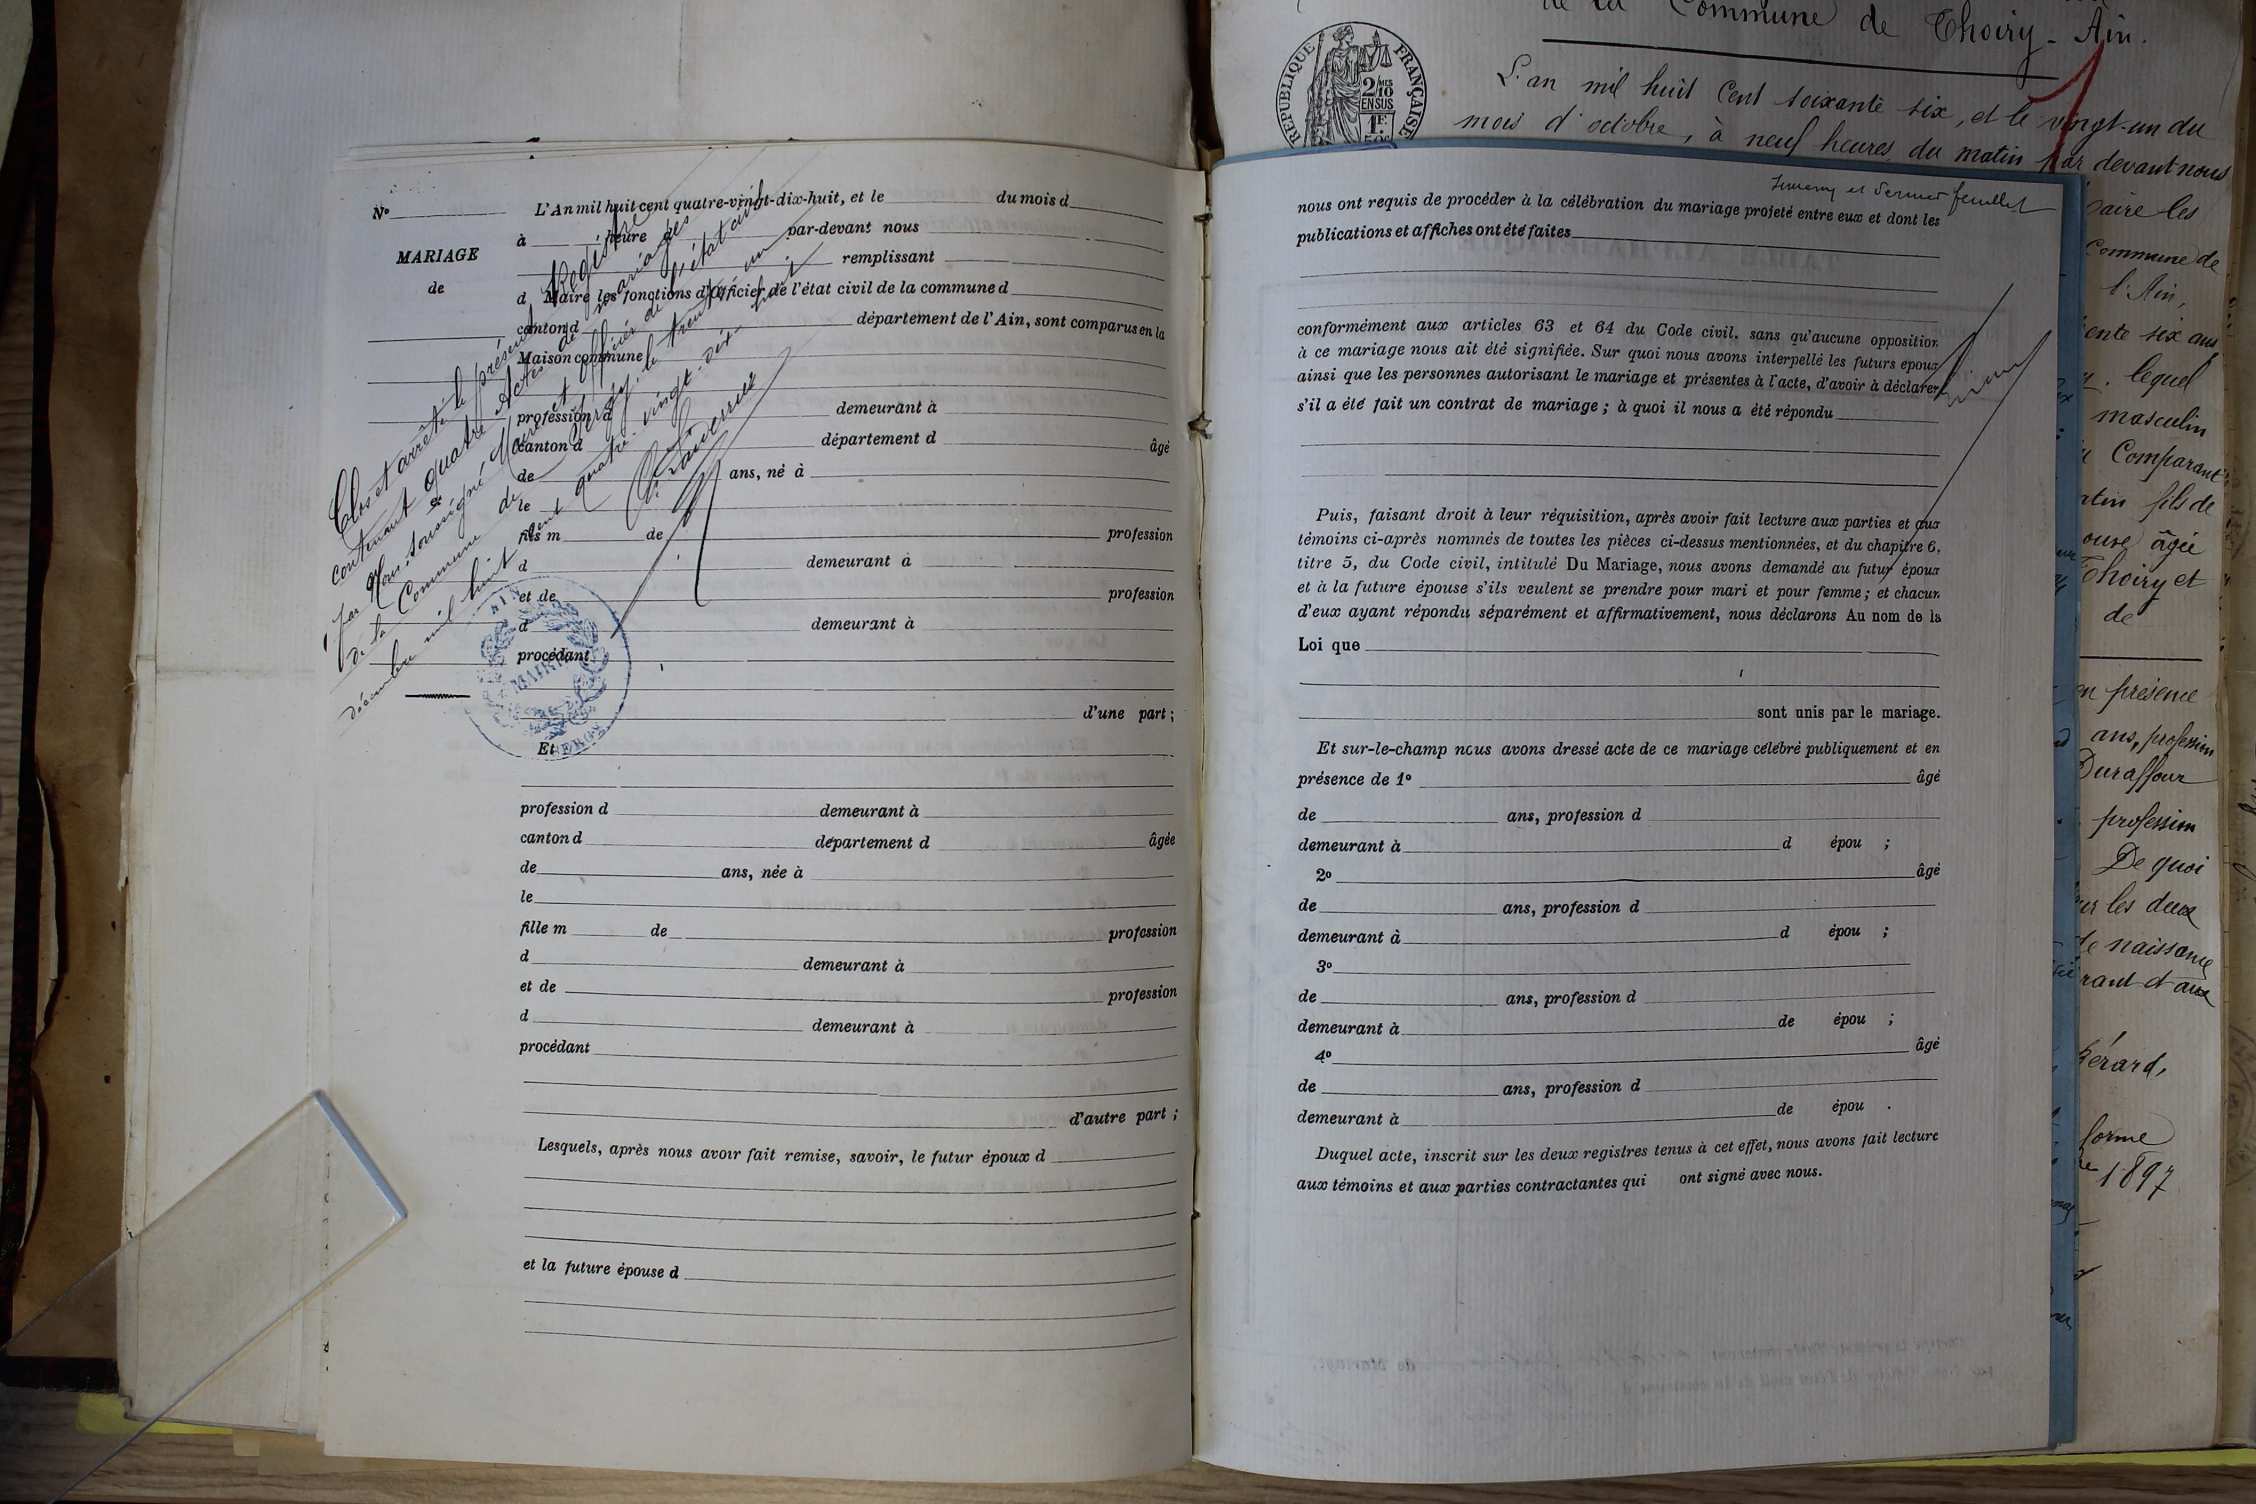 N° L'An mil huit cent quatre-vingt-dix-huit, et le du mois d
à heure d par-devant nous
MARIAGE
remplissant
de
d Maire les fonctions d'officier de l'état civil de la commune d
canton d département de l'Ain, sont comparus en la
Maison commune
profession d demeurant à
canton d département d âgé
de ans, né à
le
fils m de profession
d demeurant à
et de profession
d demeurant à
procédant
d'une part ;
Et
profession d demeurant à
canton d département d âgée
de ans, née à
le
fille m de profession
d demeurant à
et de profession
d demeurant à
procédant
d'autre part ;
Lesquels, après nous avoir fait remise, savoir, le futur époux d
et la future épouse d
Clos et arrêté le présent Registre
contenant quatre Actes de mariages
par Nous soussigné Maire et officier de l'état civil
de la Commune de Sergy, le trente un
décembre mil huit cent quatre vingt-dix huit
MAIRIE
AIN
SERGY
nous ont requis de procéder à la célébration du mariage projeté entre eux et dont les
publications et affiches ont été faites
conformément aux articles 63 et 64 du Code civil. sans qu'aucune opposition
à ce mariage nous ait été signifiée. Sur quoi nous avons interpellé les futurs époux
ainsi que les personnes autorisant le mariage et présentes à l'acte, d'avoir à déclarer
s'il a été fait un contrat de mariage ; à quoi il nous a été répondu
Puis, faisant droit à leur réquisition, après avoir fait lecture aux parties et aux
témoins ci-après nommés de toutes les pièces ci-dessus mentionnées, et du chapitre 6,
titre 5, du Code civil, intitulé Du Mariage, nous avons demandé au futur époux
et à la future épouse s'ils veulent se prendre pour mari et pour femme ; et chacun
d'eux ayant répondu séparément et affirmativement, nous déclarons Au nom de la
Loi que
sont unis par le mariage.
Et sur-le-champ nous avons dressé acte de ce mariage célébré publiquement et en
présence de 1° âgé
de ans, profession d
demeurant à d épou ;
2° âgé
de ans, profession d
demeurant à d épou ;
3°
de ans, profession d
demeurant à de épou ;
4° âgé
de ans, profession d
demeurant à de épou .
Duquel acte, inscrit sur les deux registres tenus à cet effet, nous avons fait lecture
aux témoins et aux parties contractantes qui ont signé avec nous.
et dernier feuillet
de la Commune de Thoiry - Ain.
REPUBLIQUE FRANÇAISE
2/10 MES
EN SUS
1F.
50c
L'an mil huit Cent soixante six, et le vingt-un du
mois d'octobre, à neuf heures du matin par devant nous
aire les
Commune de
l'Ain,
ente six ans
lequel
masculin
Comparant
atin fils de
ouse âgée
Thoiry et
de
en présence
ans, profession
Duraffour
profession
De quoi
ur les deux
de naissance
rant et aux
Gérard,
forme
1897